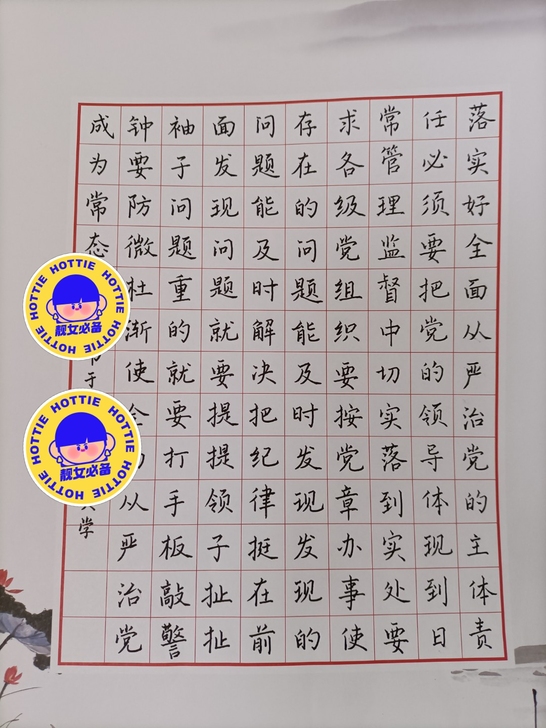 落实好全面从严治党的主体责
任必须要把党的领导体现到日
常管理监督中切实落到实处要
求各级党组织要按党章办事使
存在的问题能及时发现发现的
问题能及时解决把纪律挺在前
面发现问题就要提提领子扯扯
袖子问题重的就要打手板敲警
钟要防微杜渐使从严治党
成为常态
学
HOTTIE HOTTIE HOTTIE HOTTIE HOTTIE
靓女必备
HOTTIE HOTTIE HOTTIE HOTTIE HOTTIE
靓女必备